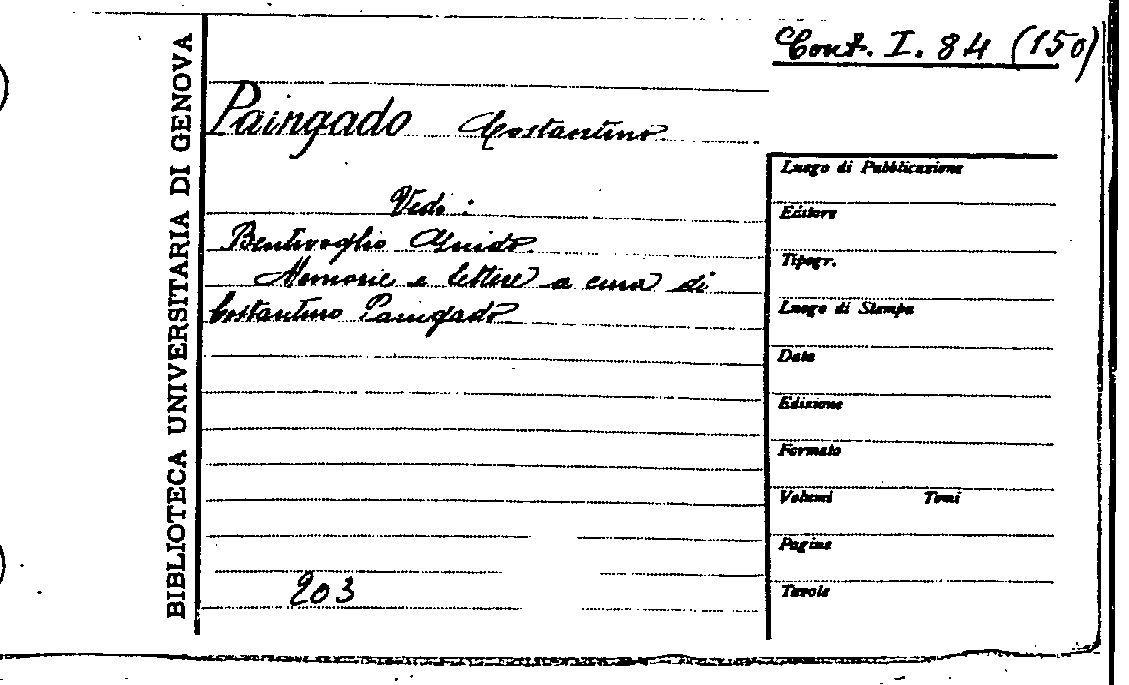 BIBLIOTECA UNIVERSITARIA DI GENOVA
Conf. I. 84 (150)
Paingado Costantino
Vedi:
Bentivoglio Guido
Memorie e lettere a cura di
Costantino Paingado
203
Luogo di Pubblicazione
Editore
Tipogr.
Luogo di Stampa
Data
Edizione
Formato
Volumi Tomi
Pagine
Tavole